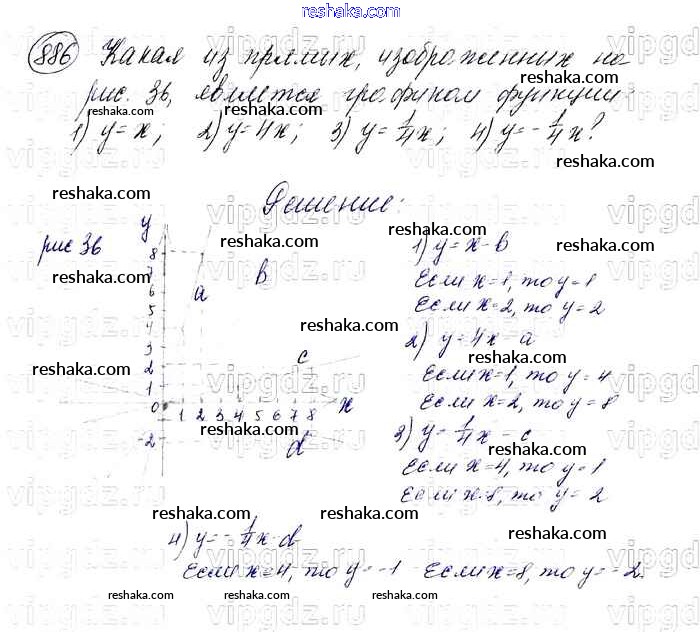 reshaka.com
886 Какая из прямых, изображенных на
reshaka.com
рис. 36, является графиком функции:
reshaka.com reshaka.com
1) y=x; 2) y=4x; 3) y=1/4x; 4) y=-1/4x?
reshaka.com
reshaka.com
Решение:
reshaka.com
y
рис 36
reshaka.com
reshaka.com
1) y=x-b
reshaka.com
Если x=1, то y=1
Если x=2, то y=2
reshaka.com
2) y=4x-a
reshaka.com
Если x=1, то y=4
Если x=2, то y=8
8
7
6
5
4
3
2
1
0
-2
a b c d
1 2 3 4 5 6 7 8 x
reshaka.com
3) y=1/4x-c
reshaka.com
Если x=4, то y=1
Если x=8, то y=2
reshaka.com reshaka.com
reshaka.com
4) y=-1/4x-d
Если x=4, то y=-1 Если x=8, то y=-2
reshaka.com reshaka.com reshaka.com reshaka.com